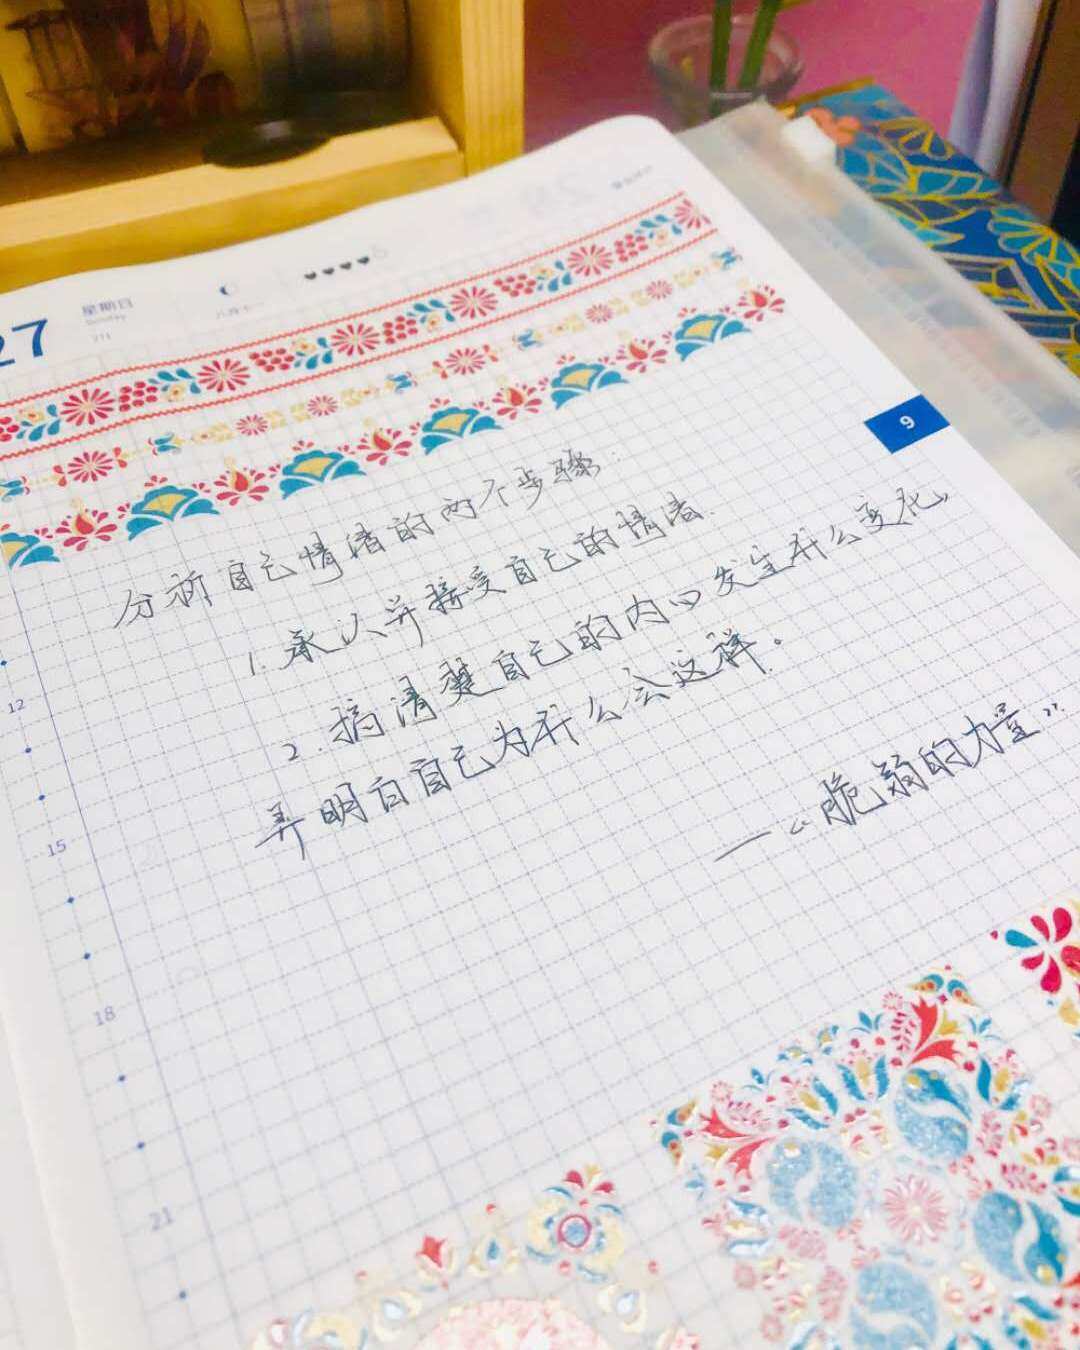 27 星期日
Sunday
八月十一
9
分析自己情绪的两个步骤:
1. 承认并接受自己的情绪.
2. 搞清楚自己的内心发生什么变化,
弄明白自己为什么会这样。
—“脆弱的力量”
12
15
18
21